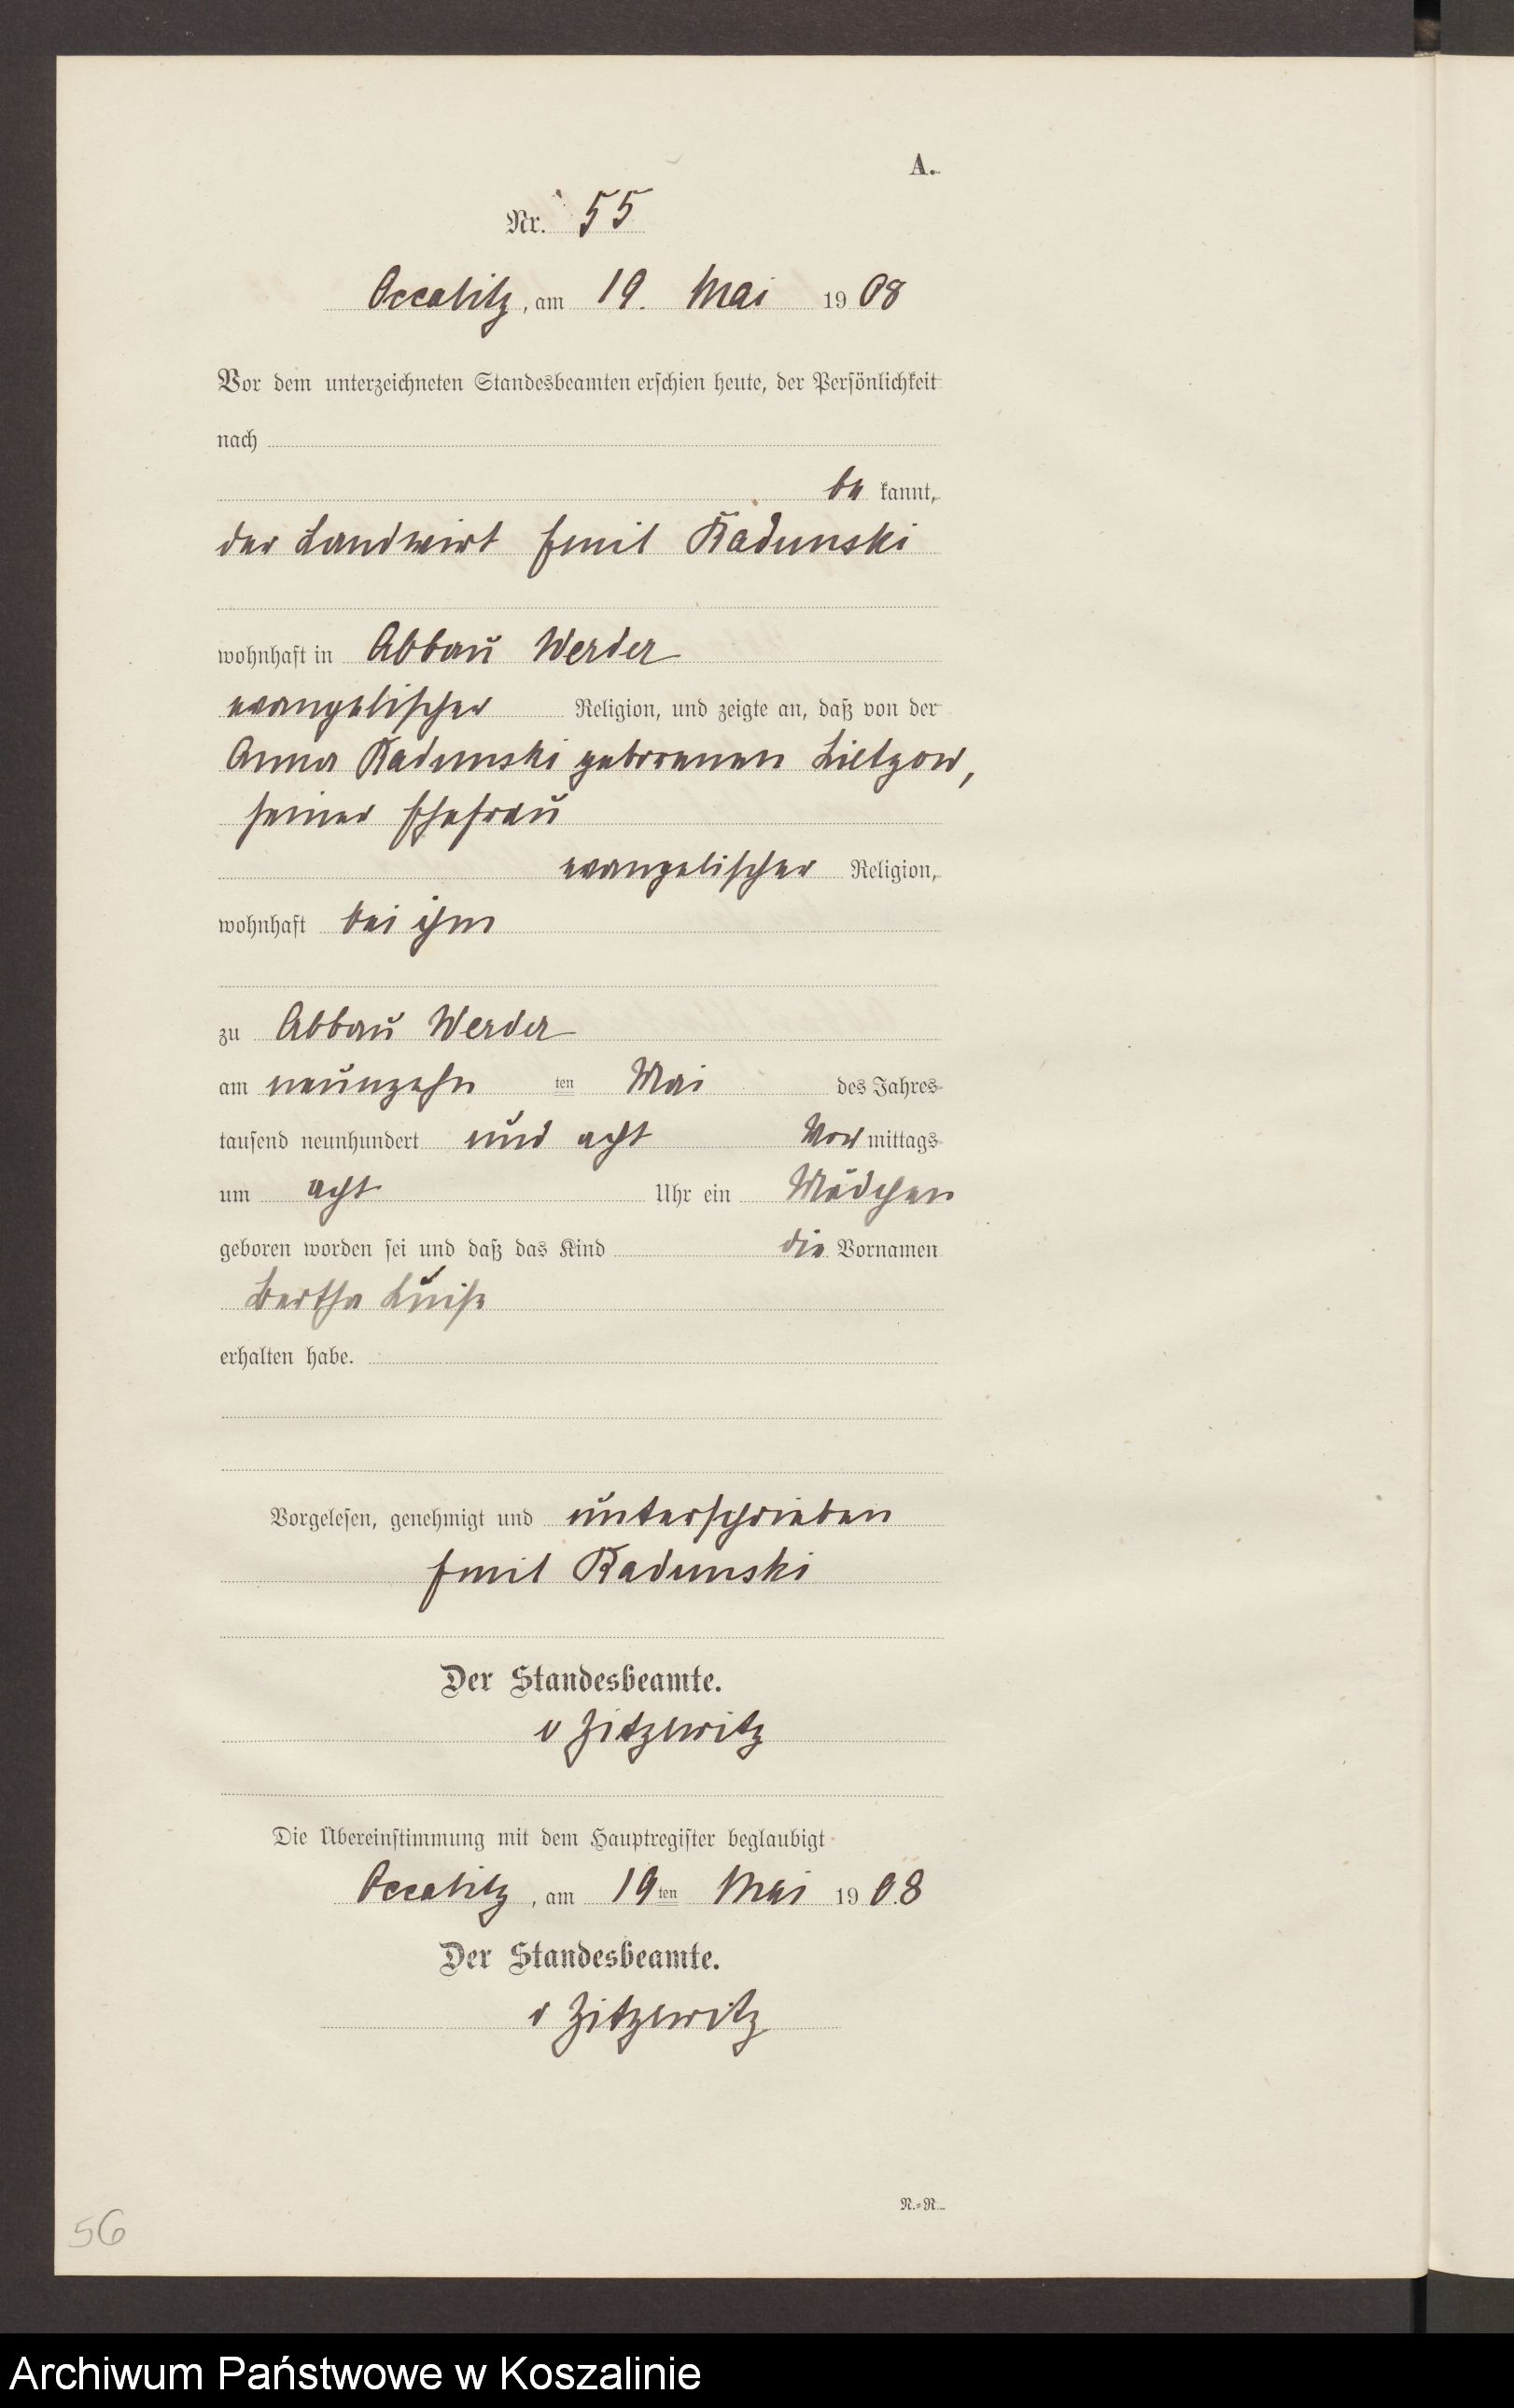 A.
Nr. 55
Occalitz, am 19. Mai 1908
Vor dem unterzeichneten Standesbeamten erschien heute, der Persönlichkeit
nach
be kannt,
der Landwirt Emil Radunski
wohnhaft in Abbau Werder
evangelischer Religion, und zeigte an, daß von der
Anna Radunski geborenen Lietzow,
seiner Ehefrau
evangelischer Religion,
wohnhaft bei ihm
zu Abbau Werder
am neunzehn ten Mai des Jahres
tausend neunhundert und acht Vor mittags
um acht Uhr ein Mädchen
geboren worden sei und daß das Kind die Vornamen
Bertha Luise
erhalten habe.
Vorgelesen, genehmigt und unterschrieben
Emil Radunski
Der Standesbeamte.
v Zitzewitz
Die Übereinstimmung mit dem Hauptregister beglaubigt
Occalitz, am 19ten Mai 1908
Der Standesbeamte.
v Zitzewitz
N.=R.
56
Archiwum Państwowe w Koszalinie